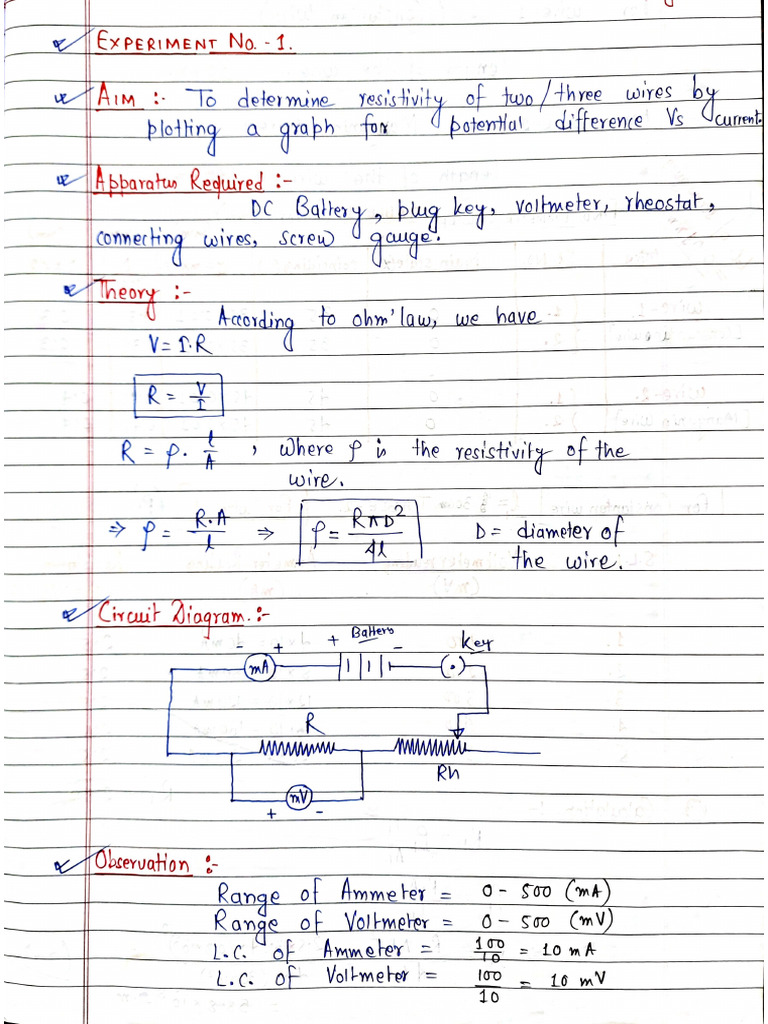 EXPERIMENT No. - 1.
AIM :- To determine resistivity of two/three wires by
plotting a graph for potential difference Vs current.
Apparatus Required :-
DC Battery, plug key, voltmeter, rheostat,
connecting wires, screw gauge.
Theory :-
According to ohm' law, we have
V = I.R
R = V/I
R = ρ. l/A , where ρ is the resistivity of the
wire.
⇒ ρ = R.A/l ⇒ ρ = RπD²/4l D = diameter of
the wire.
Circuit Diagram. :-
- + + Battery - key
mA (.)
R
Rh
mV
+ -
Observation :-
Range of Ammeter = 0 - 500 (mA)
Range of Voltmeter = 0 - 500 (mV)
L.C. of Ammeter = 100/10 = 10 mA
L.C. of Voltmeter = 100/10 = 10 mV